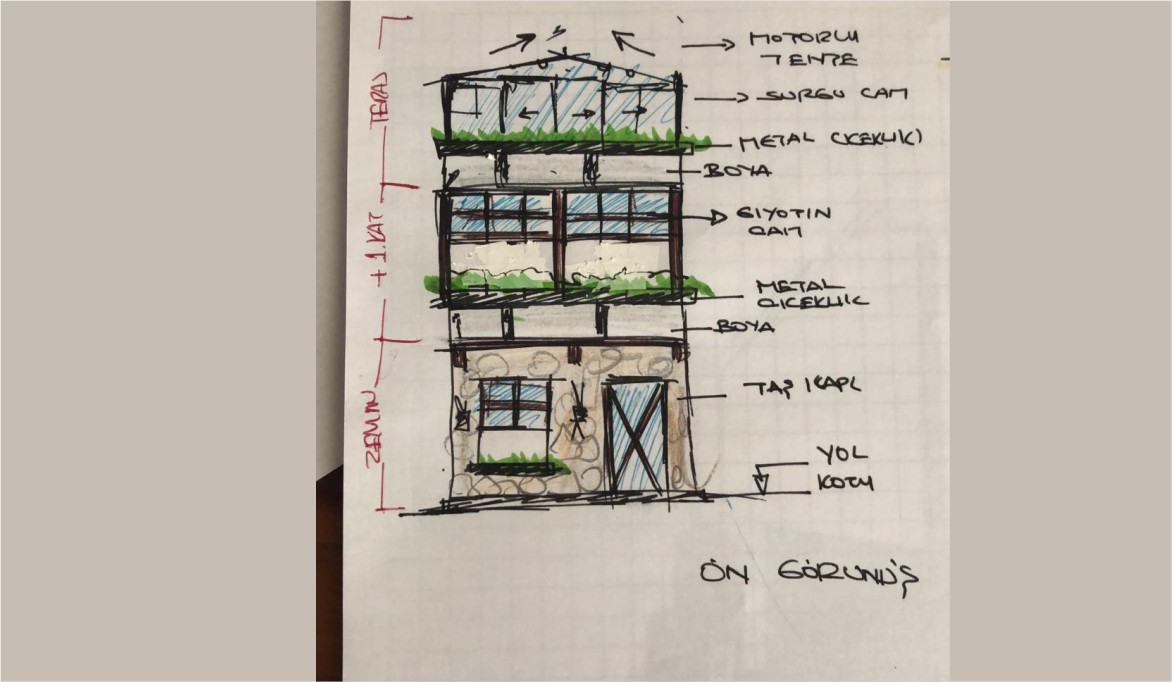 MOTORLU
TENTE
SURGU CAM
METAL ÇİCEKLİK
BOYA
GIYOTIN
CAM
METAL
CICEKLIK
BOYA
TAŞ KAPL
YOL
KOTU
ÖN GÖRÜNÜŞ
TERAS
+ 1.KAT
ZEMIN